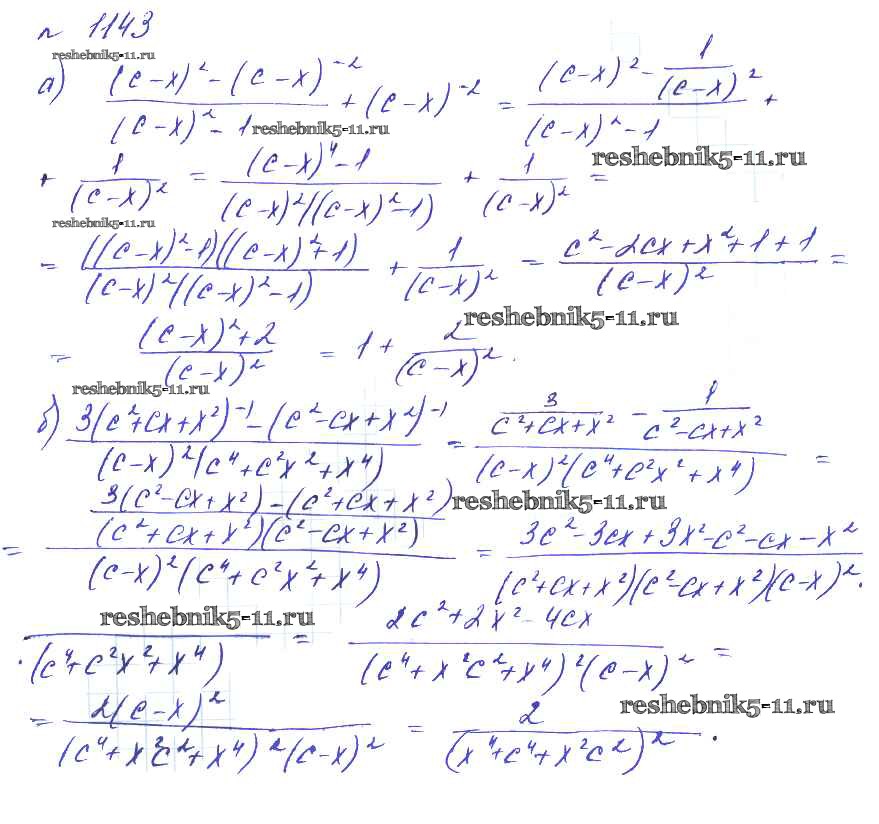 № 1143
reshebnik5-11.ru
а) ((c-x)² - (c-x)⁻²)/((c-x)² - 1) + (c-x)⁻² = ((c-x)² - 1/(c-x)²)/((c-x)² - 1) +
reshebnik5-11.ru
reshebnik5-11.ru
+ 1/(c-x)² = ((c-x)⁴ - 1)/((c-x)²((c-x)² - 1)) + 1/(c-x)² =
reshebnik5-11.ru
= (((c-x)² - 1)((c-x)² + 1))/((c-x)²((c-x)² - 1)) + 1/(c-x)² = (c² - 2cx + x² + 1 + 1)/(c-x)² =
reshebnik5-11.ru
= ((c-x)² + 2)/(c-x)² = 1 + 2/(c-x)².
reshebnik5-11.ru
б) (3(c² + cx + x²)⁻¹ - (c² - cx + x²)⁻¹)/((c-x)²(c⁴ + c²x² + x⁴)) = (3/(c² + cx + x²) - 1/(c² - cx + x²))/((c-x)²(c⁴ + c²x² + x⁴)) =
reshebnik5-11.ru
= ((3(c² - cx + x²) - (c² + cx + x²))/((c² + cx + x²)(c² - cx + x²)))/((c-x)²(c⁴ + c²x² + x⁴)) = (3c² - 3cx + 3x² - c² - cx - x²)/((c² + cx + x²)(c² - cx + x²)(c-x)² ·
reshebnik5-11.ru
· (c⁴ + c²x² + x⁴) = (2c² + 2x² - 4cx)/((c⁴ + x²c² + x⁴)²(c-x)²) =
reshebnik5-11.ru
= (2(c-x)²)/((c⁴ + x²c² + x⁴)²(c-x)²) = 2/(x⁴ + c⁴ + x²c²)².